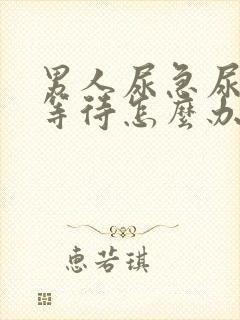 男人尿急尿
等待怎麽办
惠若琪